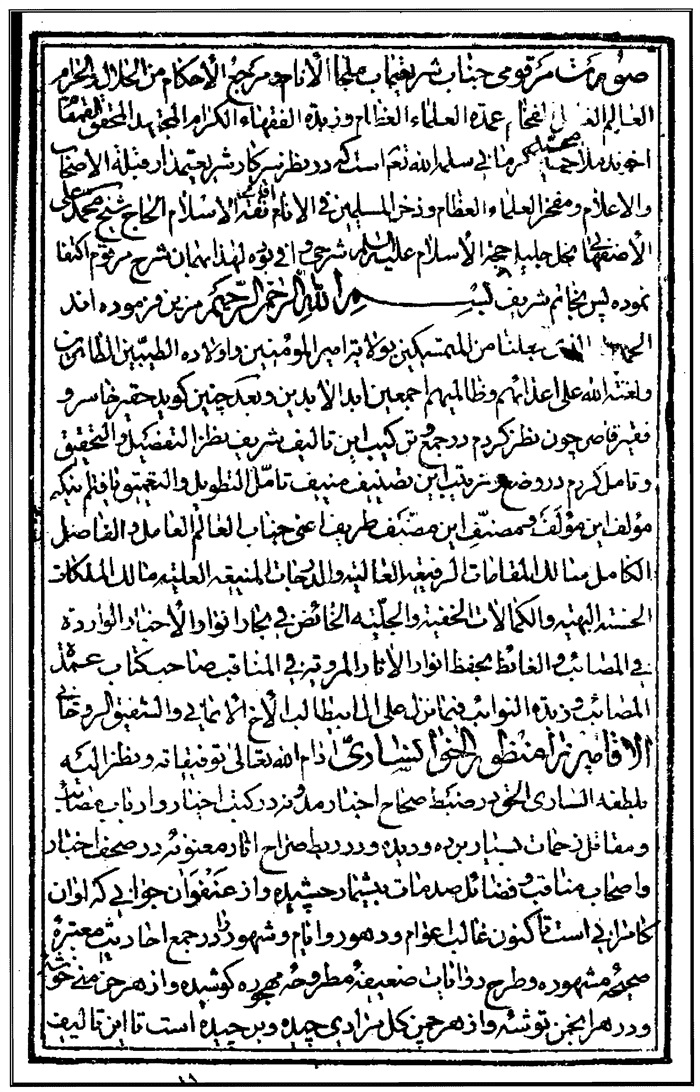 صورت مرقومی جناب شریعتمآب ملجأ الأنام و مرجع الأحکام من الحلال والحرام
العالم الفخام عمدة العلماء العظام و زبدة الفقهاء الکرام المجتهد المحقق
اخوند ملا کرمانی سلمه الله نعم است که در نظر سرکار شریعتمدار قبلة الاصحاب
والاعلام و مفخر العلماء العظام و ذخر المسلمین فی الانام ثقة الاسلام الحاج شیخ محمد علی
الأصفهانی نجل جلیل حجة الأسلام علیه السلام شرحی وافی بوده لهذا بهمان شرح مرقوم اکتفا
نموده پس بخاتم شریف بسم الله الرحمن الرحیم مزین فرموده اند
جعلنا من المتمسکین بولایة امیر المؤمنین و اولاده الطیبین الطاهرین
و لعنة الله علی اعدائهم و ظالمیهم اجمعین ابد الابدین و بعد چنین گوید حقیر خاسر و
فقیر قاصر چون نظر کردم در جمع و ترکیب این تالیف شریف نظر التفضیل والتحقیق
و تامل کردم در وضع و ترتیب این تصنیف منیف تامل التطویل و یافتم اینکه
مؤلف این مؤلف و مصنف این مصنف ظریف اعنی جناب العالم العامل والفاضل
الکامل سالک المقامات الرفیعة العالیه والدرجات المنیعة العلیه مالک الملکات
الحسنه البهیه والکمالات الخفیه والجلیه الخائض فی بحار انوار الأخبار الواردة
فی المصائب و الغائظ بحفظ انوار الأثار المرویه فی المناقب صاحب کتاب عمدة
المصائب و زبدة النوائب فیما نزل علی ال ابیطالب الأخ الأیمانی والشفیق الروحانی
الاقا میرزا منظور الحق الساری ادام الله تعالی توفیقاته و نظر الیه
بلطفه الساری الحق در ضبط صحاح اخبار مدونه در کتب اخبار و ارباب مصائب
و مقاتل زحمات بسیار برده و دیده و در ربط صراح اثار معنونه در صحف اخبار
و اصحاب مناقب و فضائل صدمات بیشمار چشیده و از عنفوان جوانی که اوان
کامرانی است تا کنون غالب اعوام و دهور و ایام و شهور را در جمع احادیث معتبره
صحیحه مشهوره و طرح روایات ضعیفه مطروحه مهجوره کوشیده و از هر خرمنی خوشه
و در هر انجمن توشه و از هر چمن گل مرادی چیده و برچیده است تا این تالیف